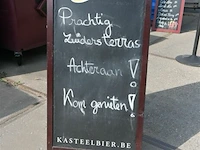 Prachtig
Zuiders terras
Achteraan !
Kom genieten !
KASTEELBIER.BE